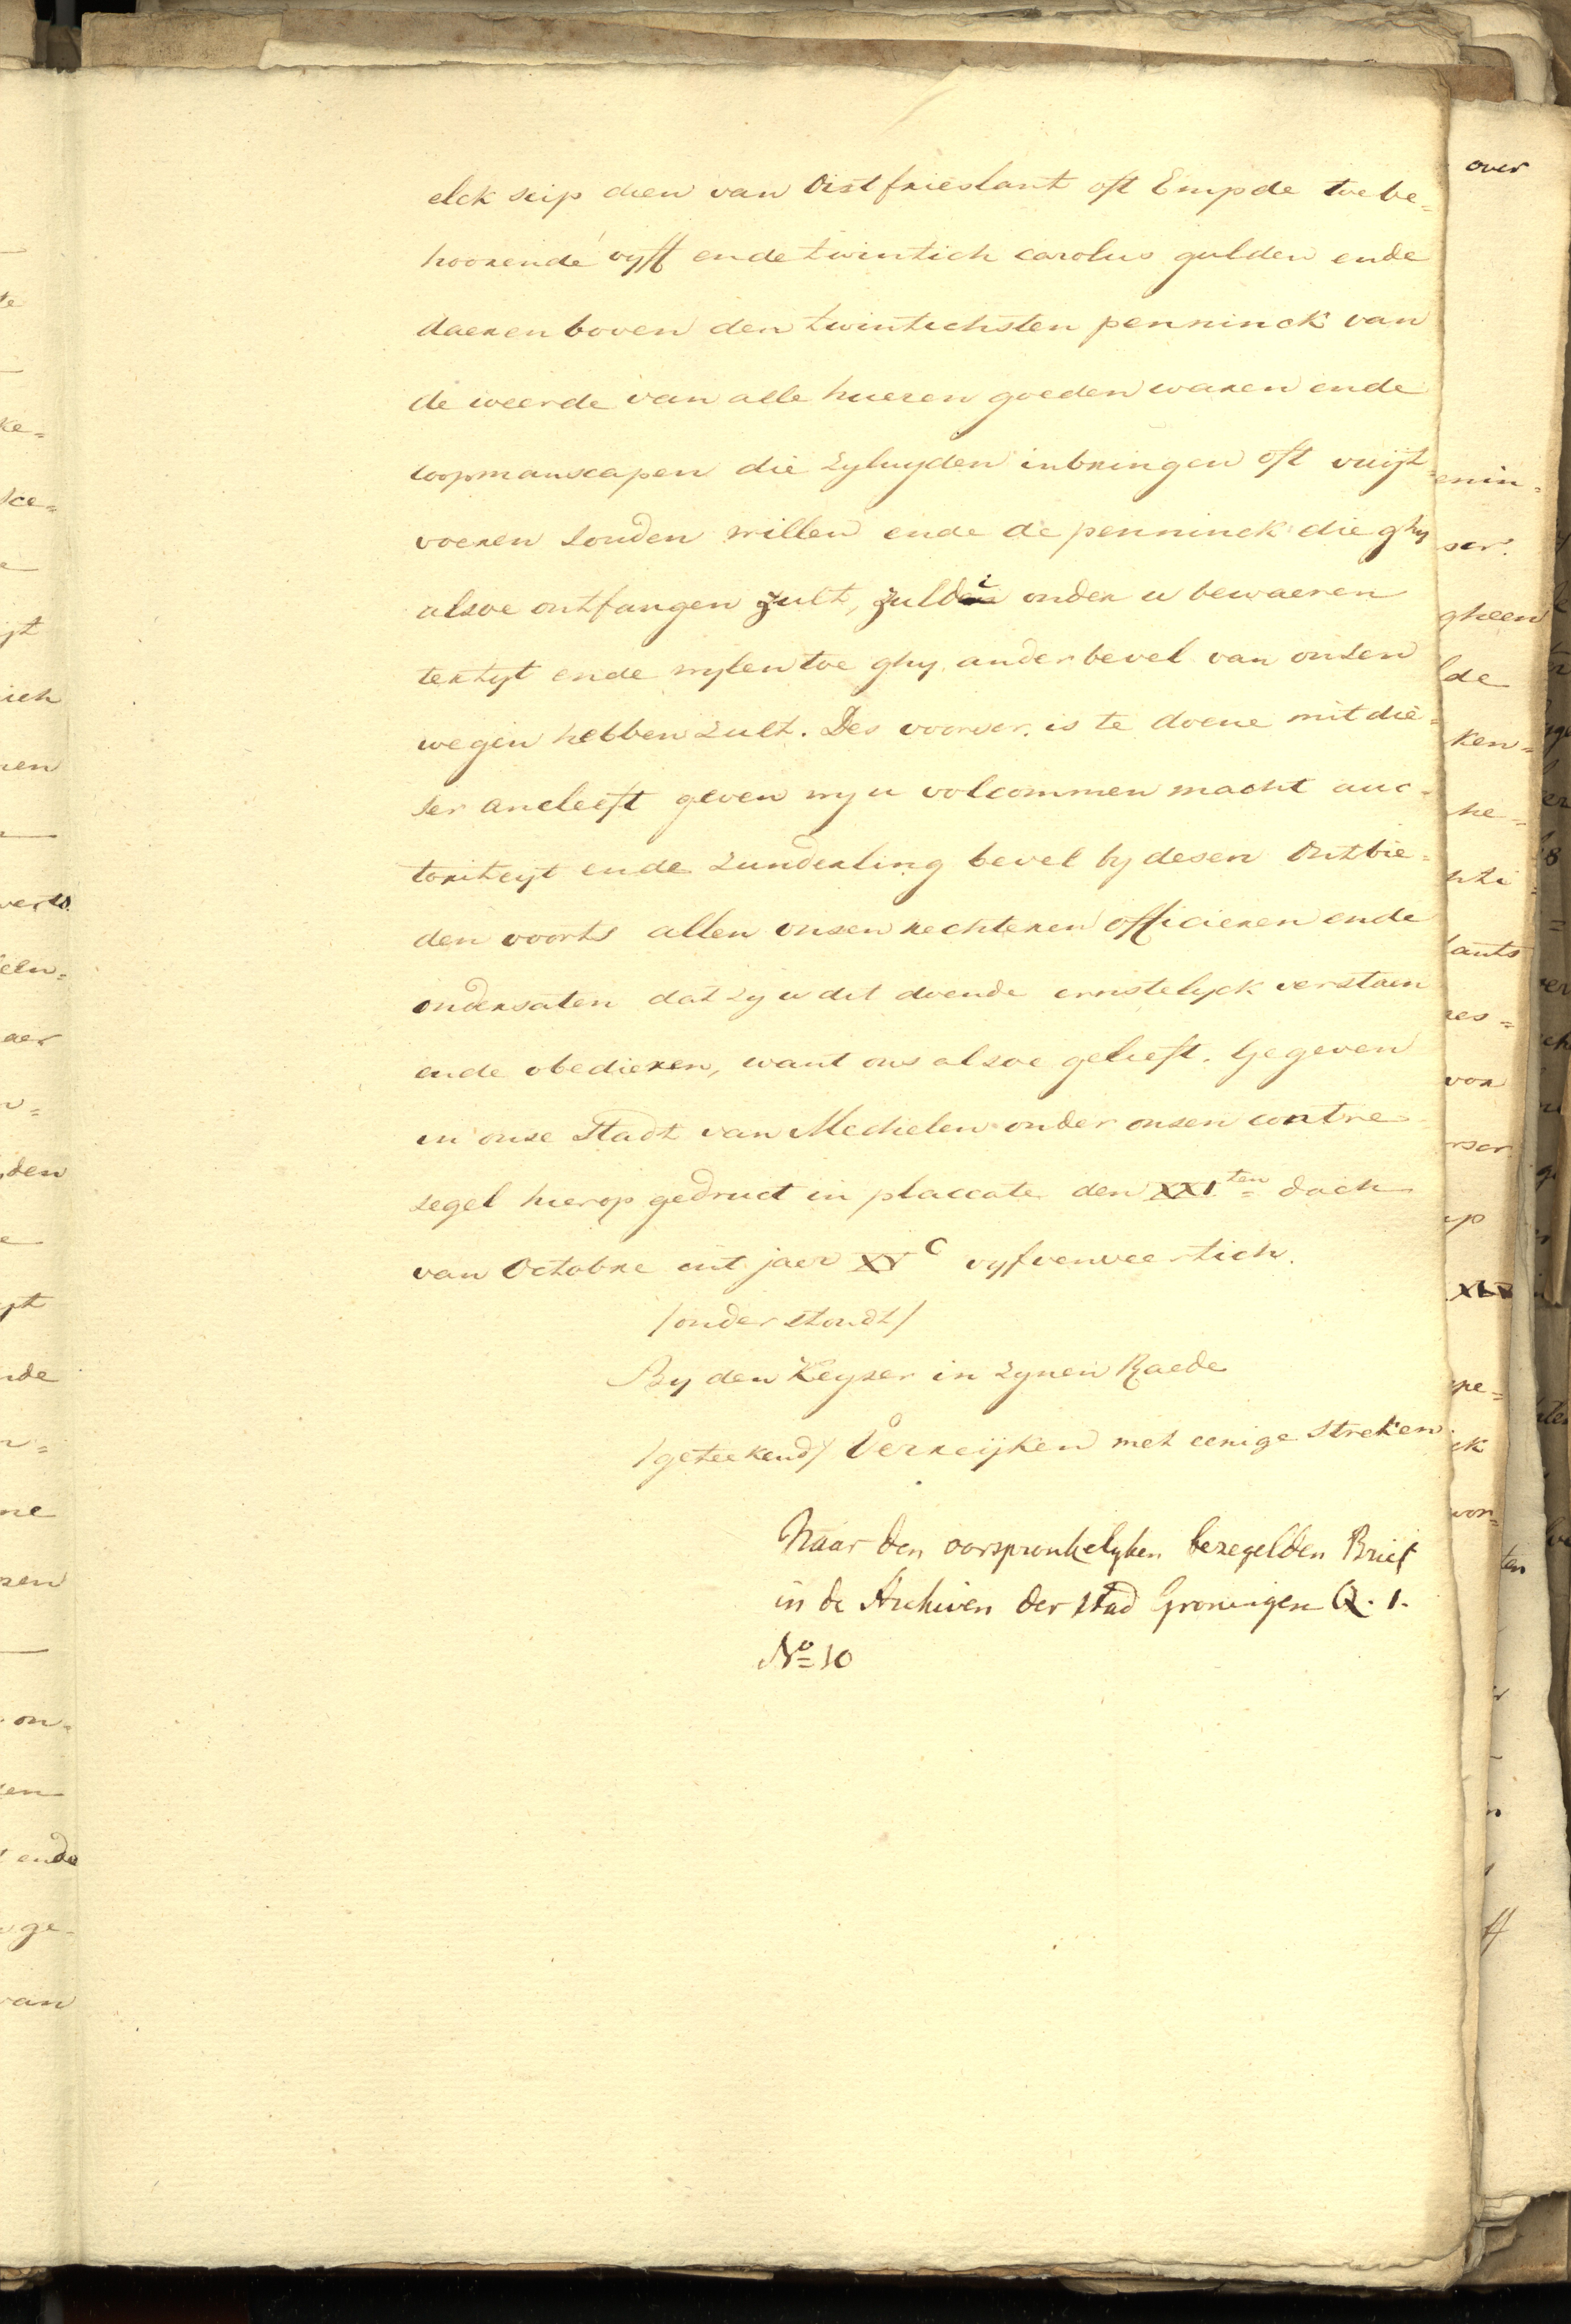 elck scip dien van Oistfrieslant oft Empde toebe=
hoorende vyff ende twintich carolus gulden ende
daerenboven den twintichsten penninck van
de weerde van alle hueren goeden waren ende
coopmanscapen die zyluyden inbringen oft vuijt=
voeren souden willen ende de penninck die ghy
alsoe ontfangen zult, zuldi onder u bewaeren
tertyt ende wylen toe ghy ander bevel van onsen
wegen hebben zult. Des voorscr. is te doene mit die=
ser ancleeft geven wy u volcommen macht auc=
toriteyt ende zunderling bevel by desen Ontbie=
den voorts allen onsen rechteren officieren ende
ondersaten dat zy u dit doende ernstelyck verstaen
ende obedieren, want ons alsoe gelieft. Gegeven
in onse Stadt van Mechelen onder onsen contre
segel hierop gedruct in placcate den XXI.ten dach
van Octobre int jaer XVC vyfvenveertich.
/onder stondt/
By den Keyser in zynen Raede
/geteekend/ Verreijken met eenige streken
Naar den oorspronkelyken bezegelden Brief
in de Archiven der stad Groningen Q. 1.
No 10
over